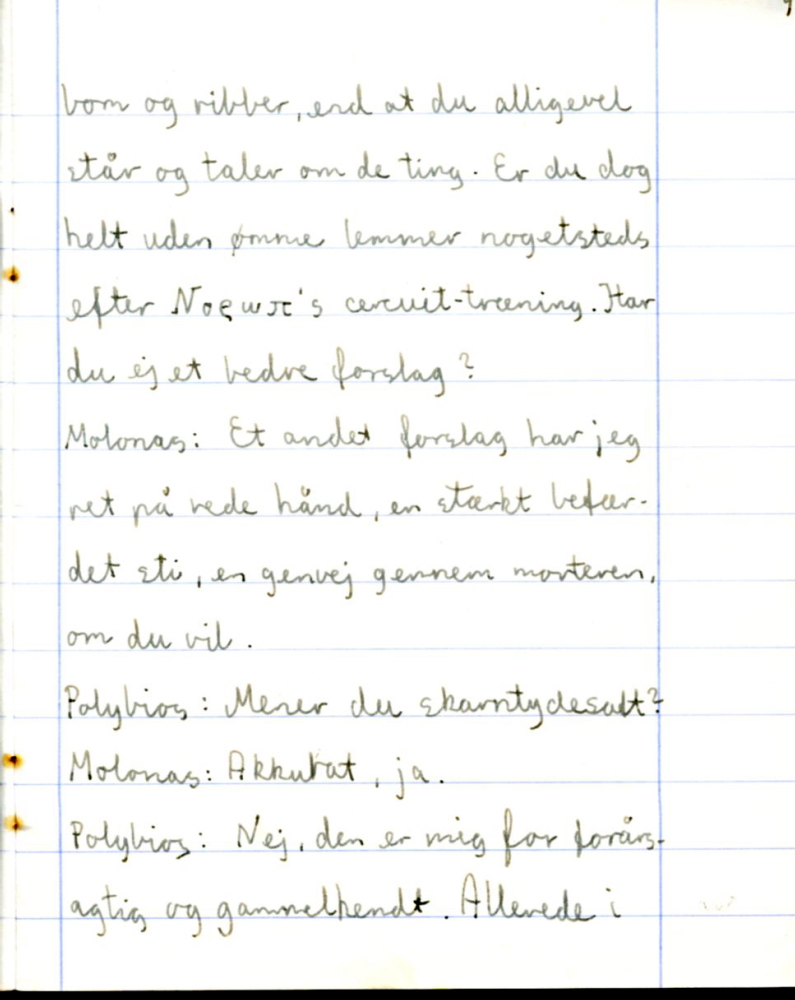 bom og ribber, end at du alligevel
står og taler om de ting. Er du dog
helt uden ømme lemmer nogetsteds
efter Νοςωπ's cercuit-træning. Har
du ej et bedre forslag?
Molonas: Et andet forslag har jeg
ret på rede hånd, en stærkt befær-
det sti, en genvej gennem morteren,
om du vil.
Polybios: Mener du skarntydesaft?
Molonas: Akkurat, ja.
Polybios: Nej, den er mig for forårs-
agtig og gammelkendt. Allerede i